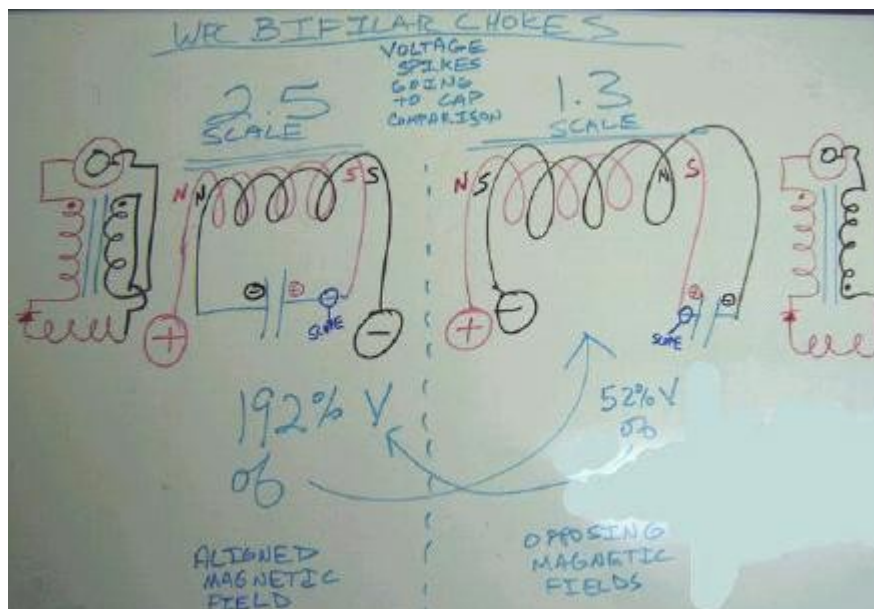 WFC BIFILAR CHOKES
VOLTAGE
SPIKES
GOING
TO CAP
COMPARISON
2.5
SCALE
1.3
SCALE
N N S S
N S N S
- +
SCOPE
+ -
+ -
SCOPE
+ -
192% V
of
52% V
of
ALIGNED
MAGNETIC
FIELD
OPPOSING
MAGNETIC
FIELDS